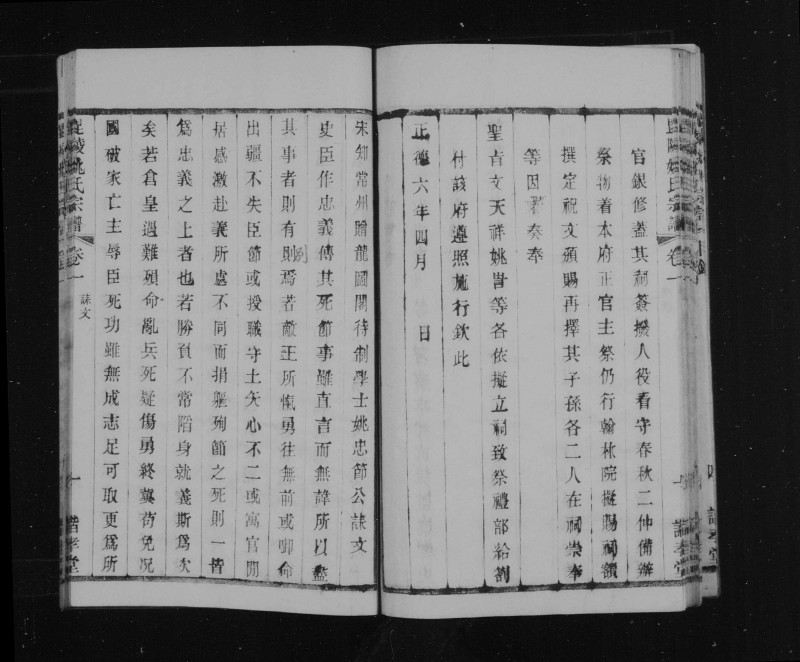 官銀修葢其祠簽撥人役看守春秋二仲備辦
祭物着本府正官主祭仍行翰林院擬賜祠額
撰定祝文頒賜再擇其子孫各二人在祠崇奉
等因具奏奉
聖旨文天祥姚訔等各依擬立祠致祭禮部給劄
付該府遵照施行欽此
正德六年四月 日
宋知常州贈龍圖閣待制學士姚忠節公誄文
史臣作忠義傳其死節事雖直言而無諱所以盡
其事者則有則焉若敵王所愾勇往無前或啣命
出疆不失臣節或授職守土矢心不二或寓官閒
居感激赴義所處不同而捐軀殉節之死則一皆
爲忠義之上者也若勝負不常陷身就義斯爲次
矣若倉皇遇難殞命亂兵死疑傷勇終異苟免况
國破家亡主辱臣死功雖無成志足可取更爲所
毘陵姚氏宗譜 卷一 誄文 一 諧孝堂